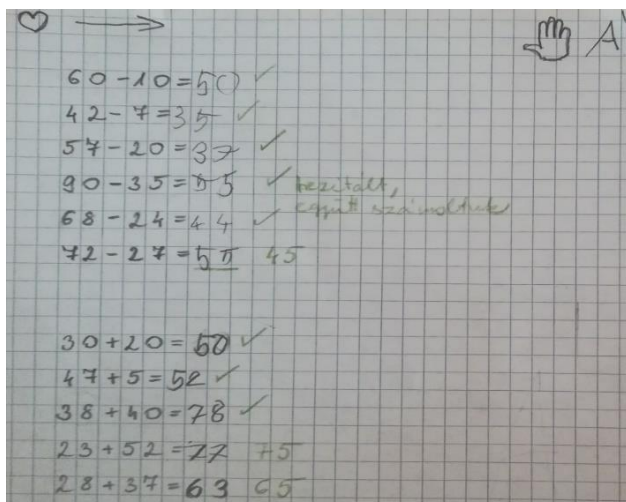 A
60-10=50 ✓
42-7=35 ✓
57-20=37 ✓
90-35=55 ✓
együtt számoltuk
68-24=44 ✓
72-27=55 45
30+20=50 ✓
47+5=52 ✓
38+40=78 ✓
23+52=77 75
28+37=63 65